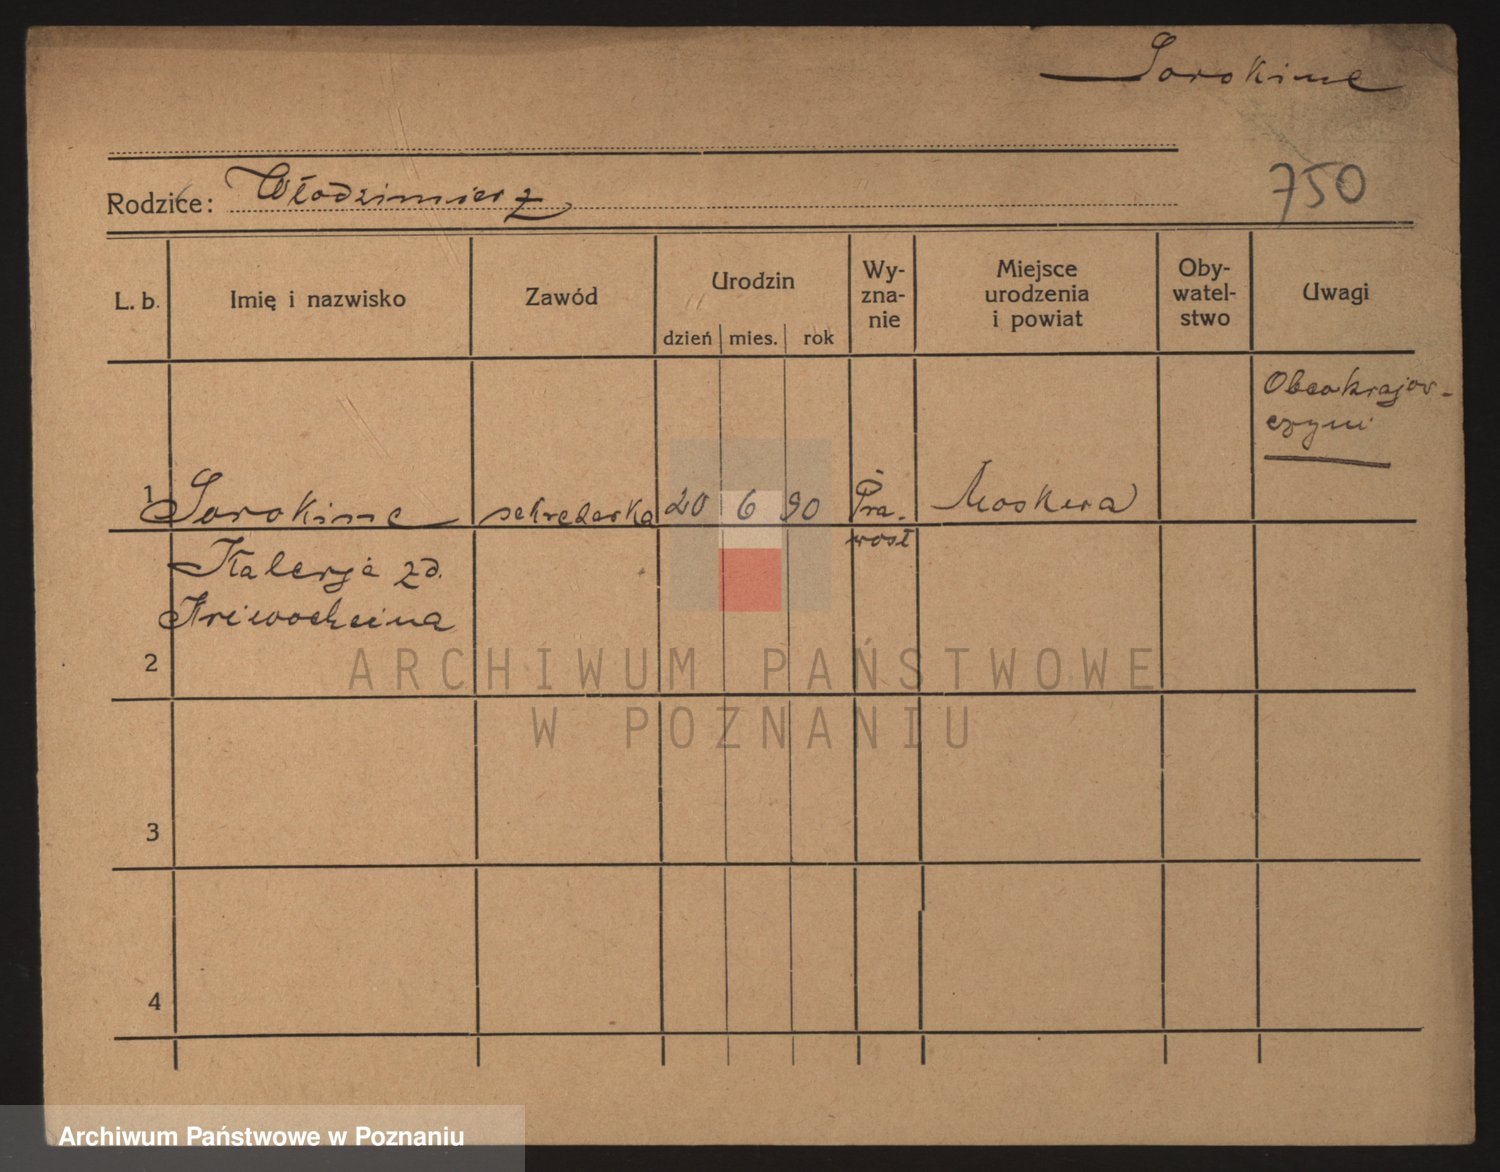 Sorokine
Rodzice: Włodzimierz
750
L. b. Imię i nazwisko Zawód Urodzin dzień mies. rok Wy-
zna-
nie Miejsce
urodzenia
i powiat Oby-
watel-
stwo Uwagi
Obcokrajow-
czyni
1 Sorokine sekretarka 20 6 90 Pra-
wosł Moskwa
Kalerja zd.
2
3
4
ARCHIWUM PAŃSTWOWE
W POZNANIU
Archiwum Państwowe w Poznaniu